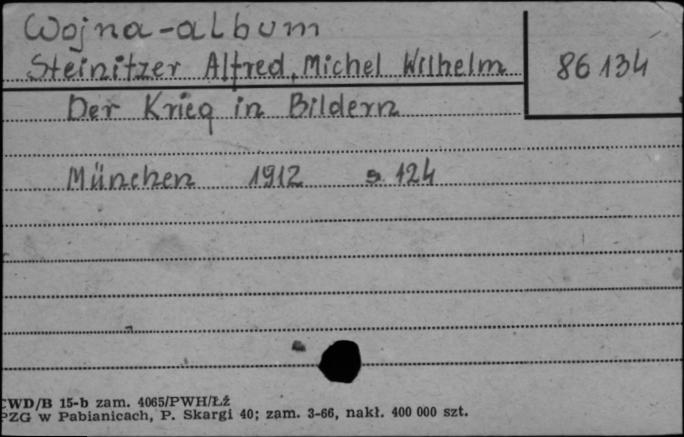 Wojna-album
Steinitzer Alfred, Michel Wilhelm
86 134
Der Krieg in Bildern
München 1912 s. 124
CWD/B 15-b zam. 4065/PWH/Łź
PZG w Pabianicach, P. Skargi 40; zam. 3-66, nakł. 400 000 szt.